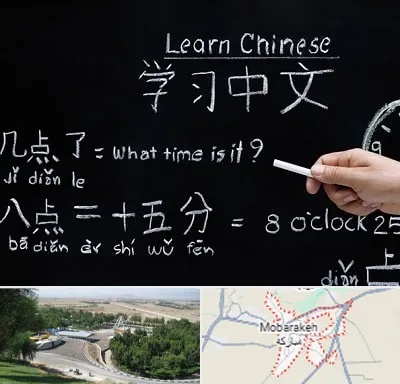 Learn Chinese
学习中文
9
几点了 = what time is it ?
jǐ diǎn le
八点二十五分 = 8 o'clock 25
bā diǎn èr shí wǔ fēn
diǎn
Mobarakeh
مبارکه